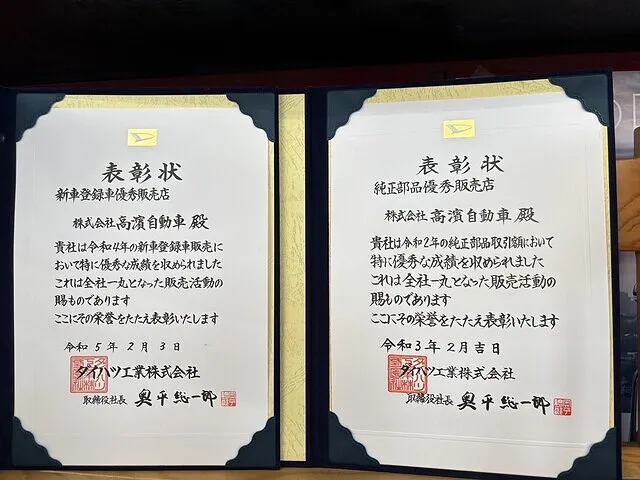 表彰状
新車登録車優秀販売店
株式会社高濱自動車 殿
貴社は令和4年の新車登録車販売に
おいて特に優秀な成績を収められました
これは全社一丸となった販売活動の
賜ものであります
ここにその栄誉をたたえ表彰いたします
令和5年2月3日
ダイハツ工業株式会社
取締役社長 奥平総一郎
表彰状
純正部品優秀販売店
株式会社高濱自動車 殿
貴社は令和2年の純正部品取引額において
特に優秀な成績を収められました
これは全社一丸となった販売活動の
賜ものであります
ここにその栄誉をたたえ表彰いたします
令和3年2月吉日
ダイハツ工業株式会社
取締役社長 奥平総一郎